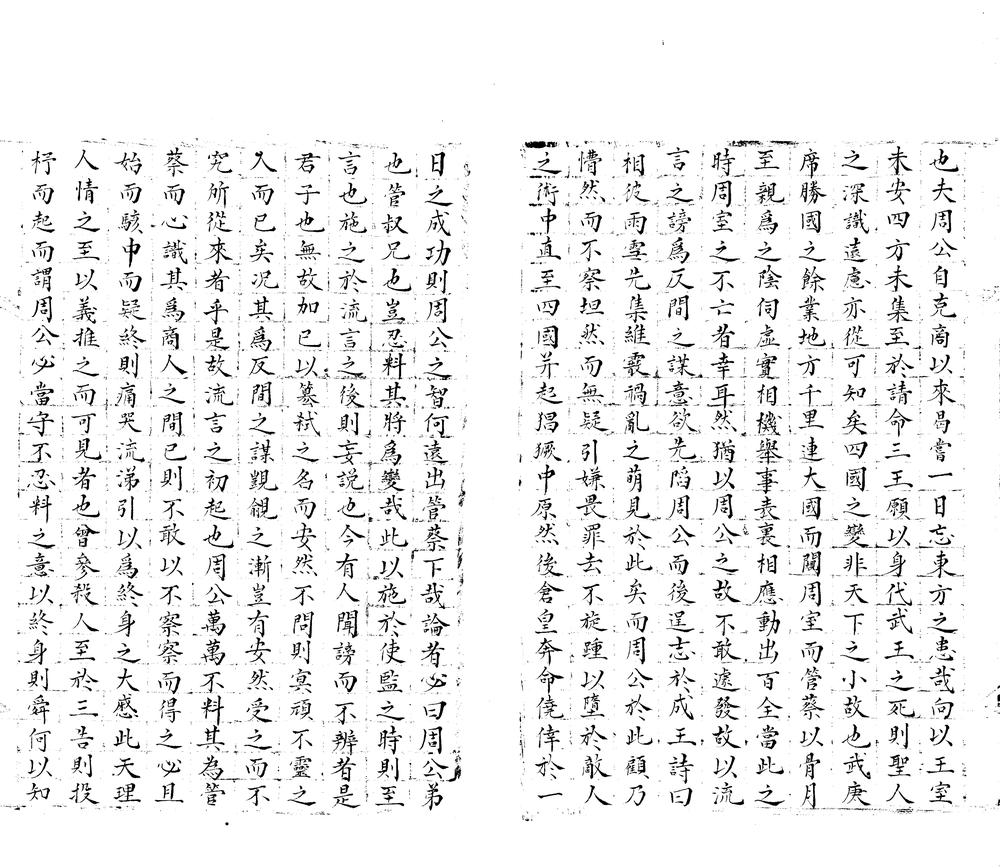 也夫周公自克商以來曷嘗一日忘東方之患哉向以王室
未安四方未集至於請命三王願以身代武王之死則聖人
之深識遠慮亦從可知矣四國之變非天下之小故也武庚
席勝國之餘業地方千里連大國而闚周室而管蔡以骨月
至親爲之陰伺虛實相機舉事表裏相應動出百全當此之
時周室之不亡者幸耳然猶以周公之故不敢遽發故以流
言之謗爲反間之謀意欲先陷周公而後逞志於成王詩曰
相彼雨雪先集維霰禍亂之萌見於此矣而周公於此顧乃
懵然而不察坦然而無疑引嫌畏罪去不旋踵以墮於敵人
之術中直至四國並起猖獗中原然後倉皇奔命僥倖於一
日之成功則周公之智何遠出管蔡下哉論者必曰周公弟
也管叔兄也豈忍料其將爲變哉此以施於使監之時則至
言也施之於流言之後則妄説也今有人聞謗而不辨者是
君子也無故加已以簒弑之名而安然不問則冥頑不靈之
人而已矣况其爲反間之謀覬覦之漸豈有安然受之而不
究所從來者乎是故流言之初起也周公萬萬不料其為管
蔡而心識其爲商人之間已則不敢以不察察而得之必且
始而駭中而疑終則痛哭流涕引以爲終身之大慼此天理
人情之至以義推之而可見者也曾參殺人至於三告則投
杼而起而謂周公必當守不忍料之意以終身則舜何以知